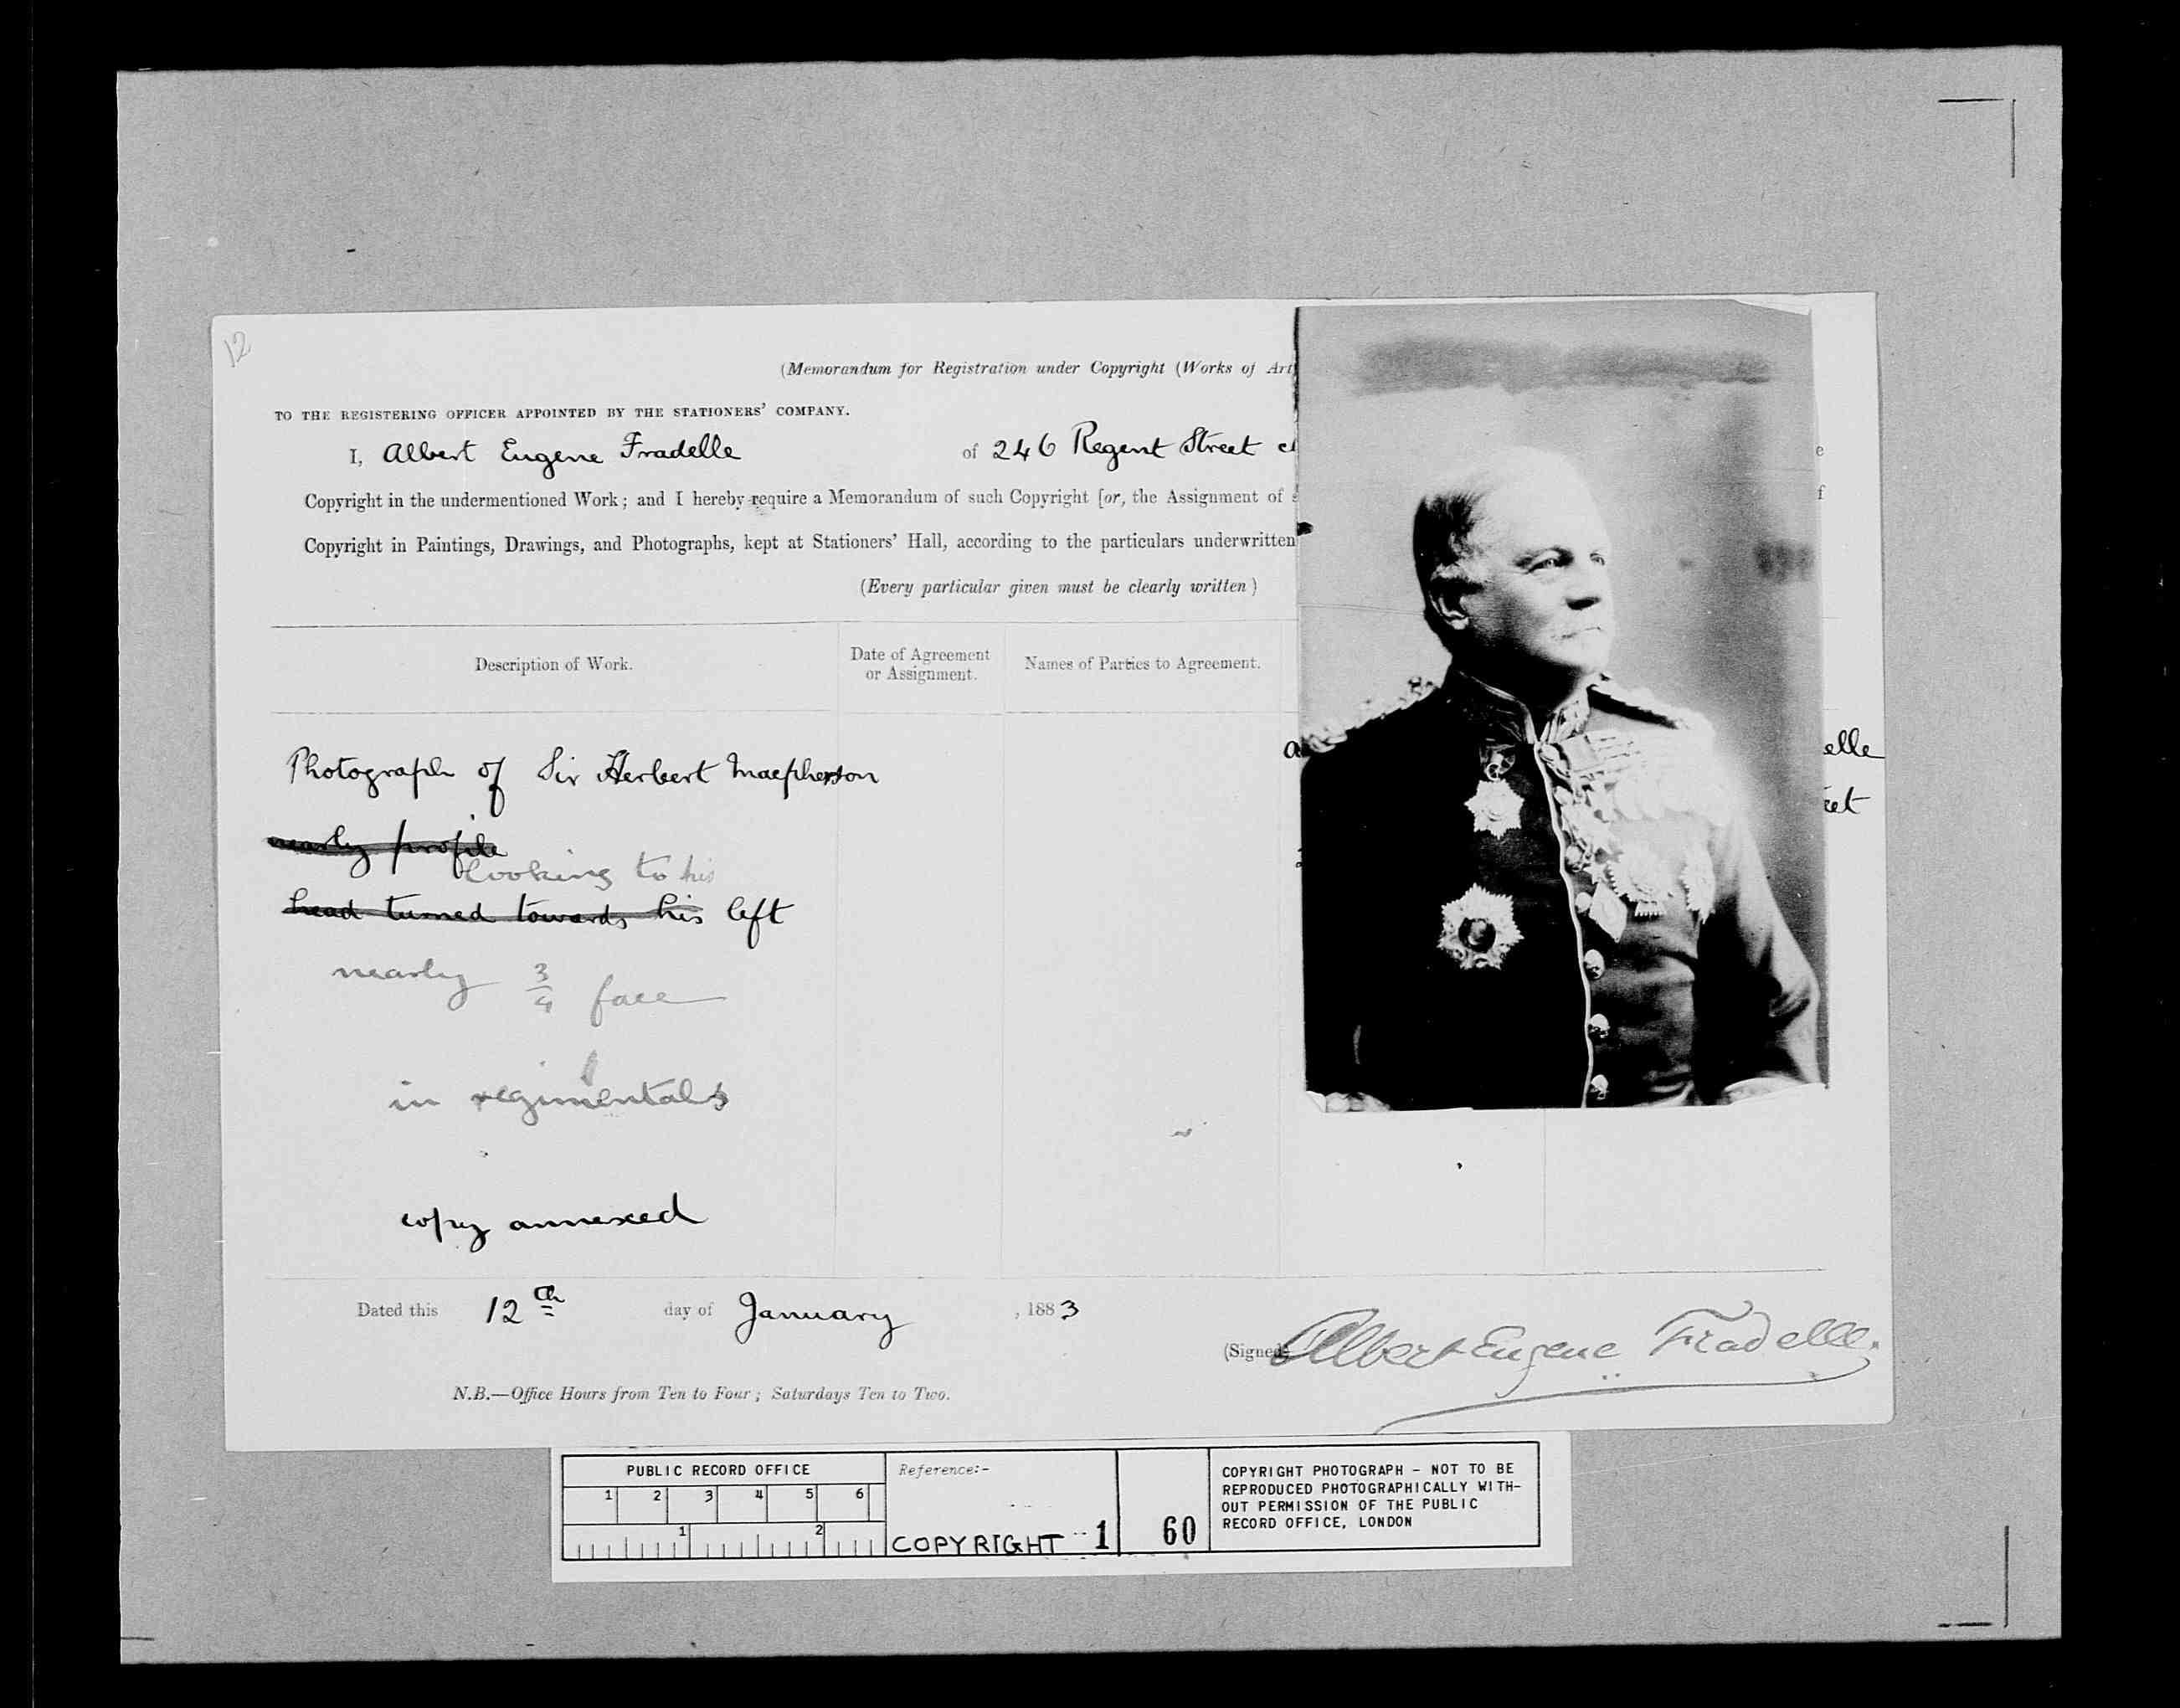 12
(Memorandum for Registration under Copyright (Works of Art
TO THE REGISTERING OFFICER APPOINTED BY THE STATIONERS' COMPANY.
I, Albert Eugene Fradelle of 246 Regent Street e
Copyright in the undermentioned Work; and I hereby require a Memorandum of such Copyright [or, the Assignment of f
Copyright in Paintings, Drawings, and Photographs, kept at Stationers' Hall, according to the particulars underwritten
(Every particular given must be clearly written)
Description of Work.
Date of Agreement
or Assignment.
Names of Parties to Agreement.
Photograph of Sir Herbert Macpherson
nearly profile
looking to his
head turned towards his left
nearly 3/4 face
in regimentals
copy annexed
elle
eet
Dated this 12th day of January, 1883
(Signed) Albert Eugene Fradelle.
N.B.—Office Hours from Ten to Four; Saturdays Ten to Two.
PUBLIC RECORD OFFICE
1 2 3 4 5 6
1 2
Reference:-
COPYRIGHT 1
60
COPYRIGHT PHOTOGRAPH - NOT TO BE
REPRODUCED PHOTOGRAPHICALLY WITH-
OUT PERMISSION OF THE PUBLIC
RECORD OFFICE, LONDON